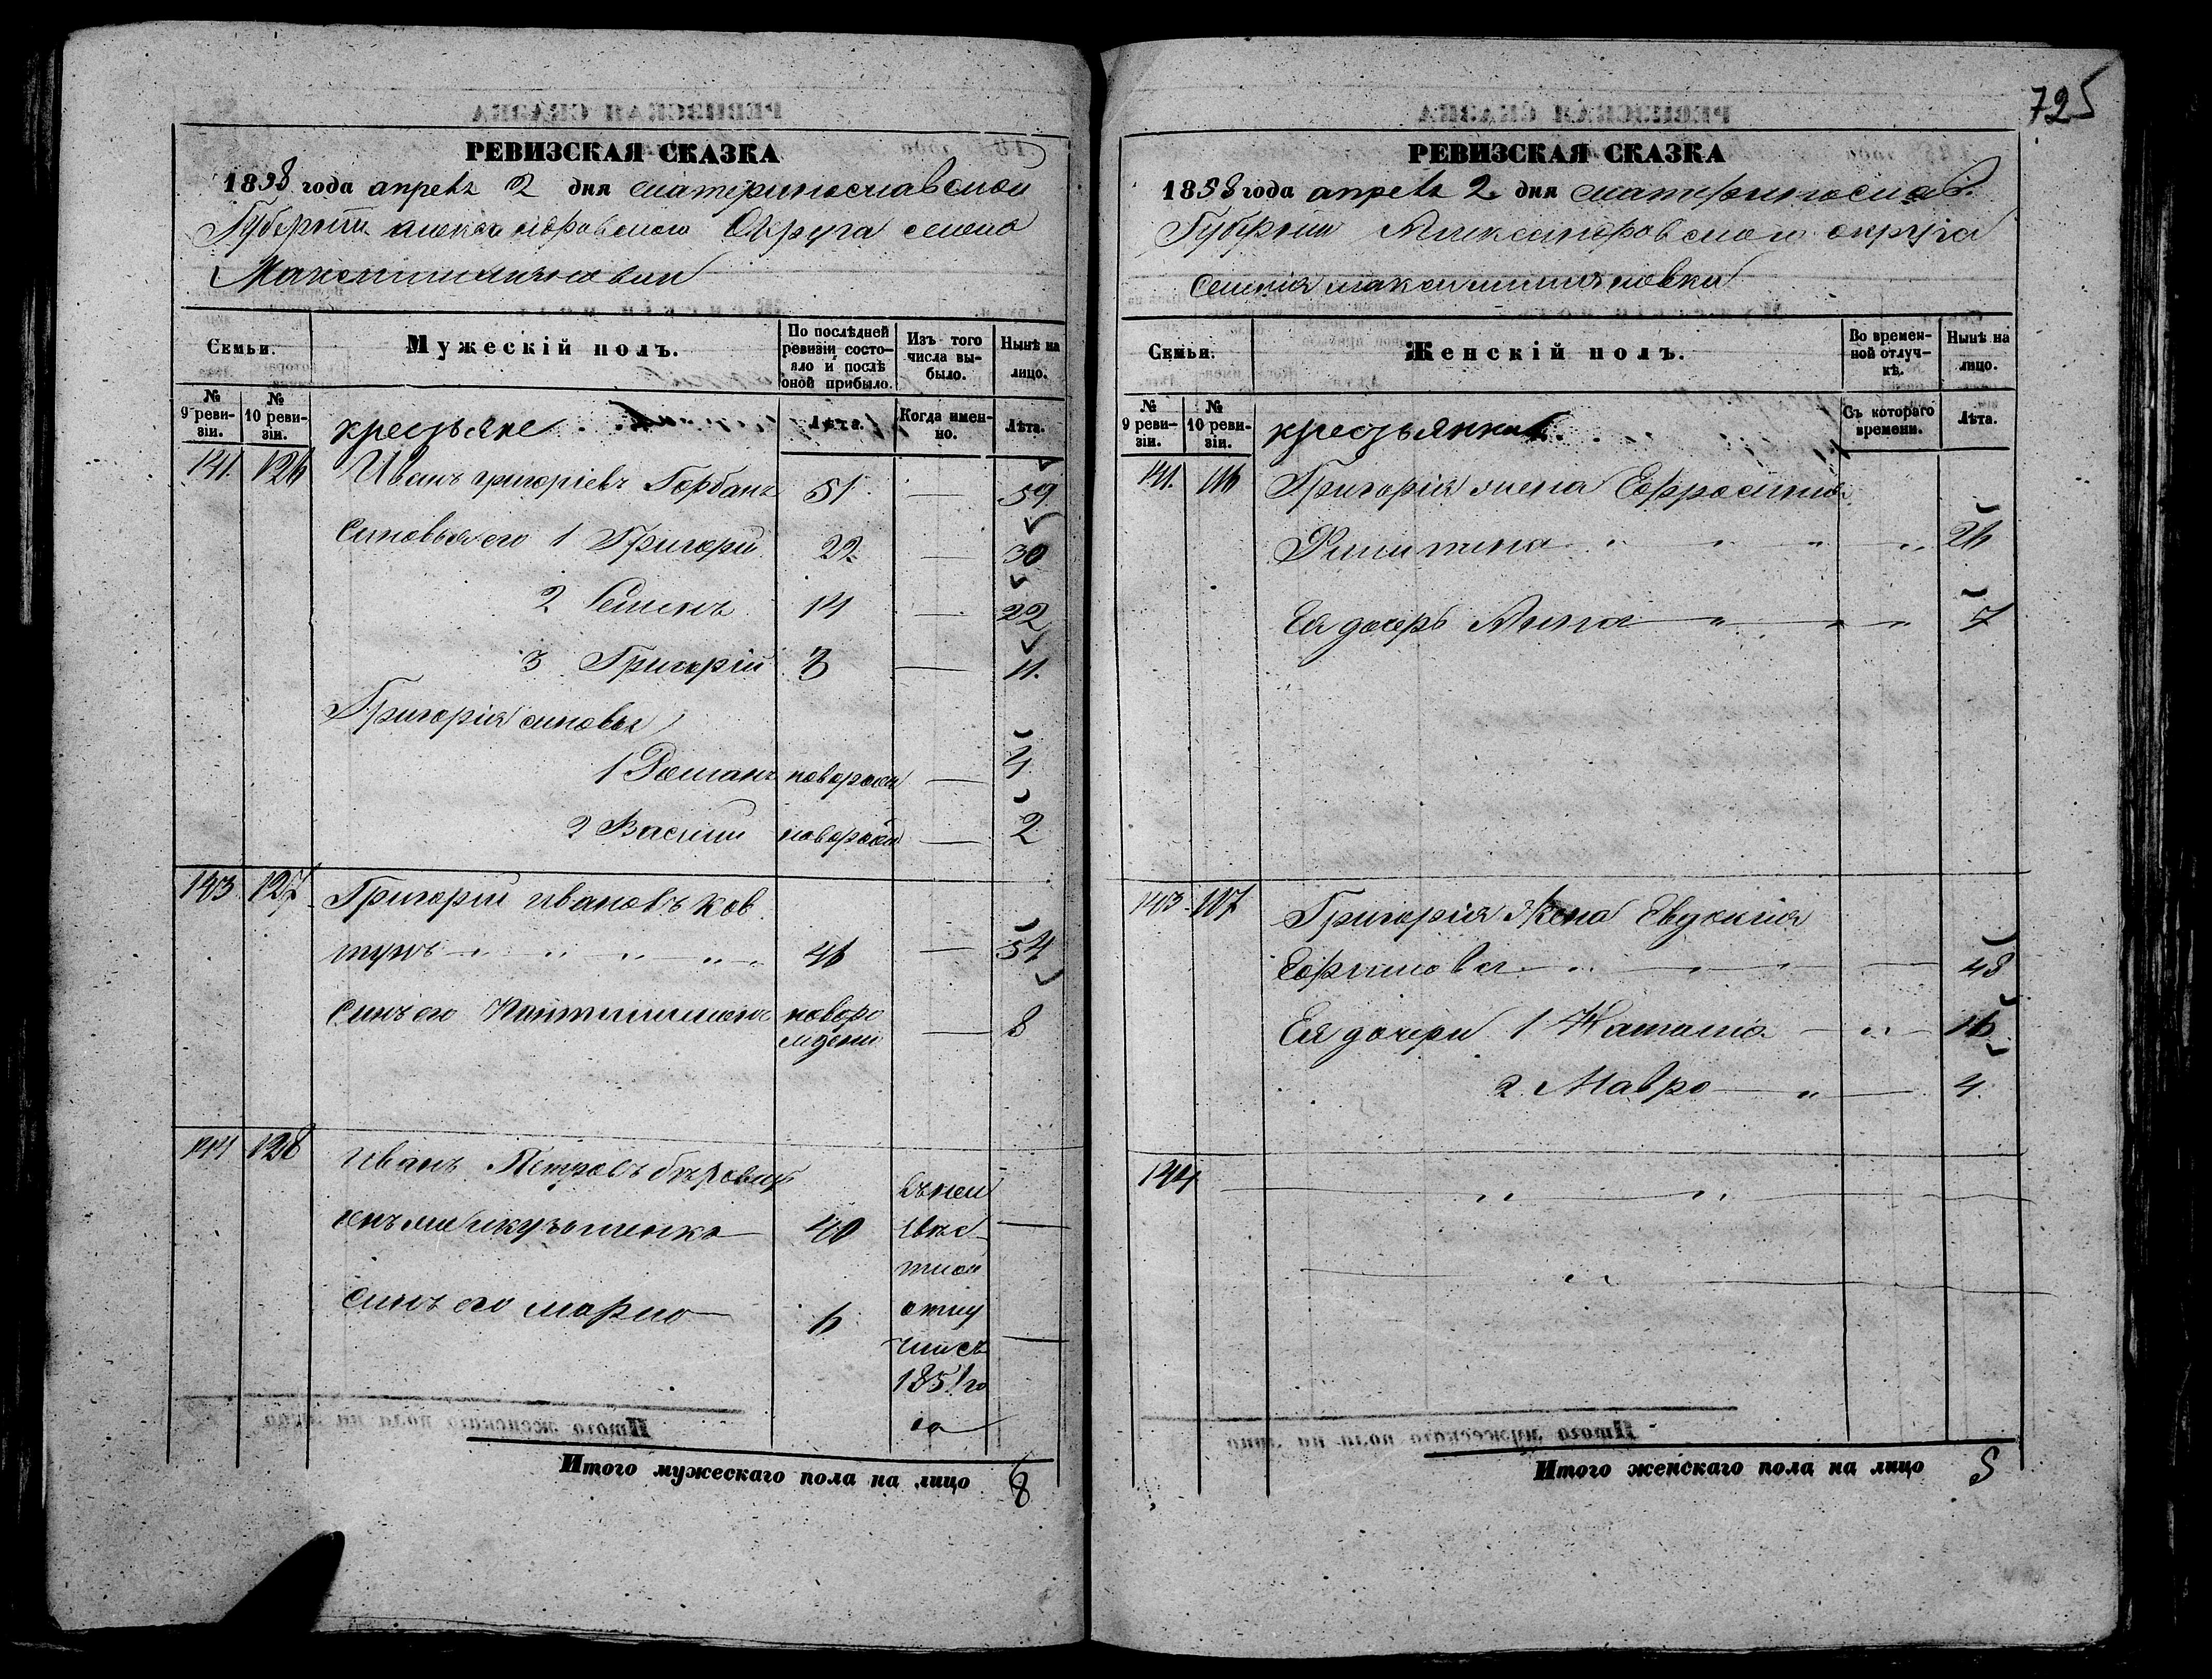 725
РЕВИЗСКАЯ СКАЗКА
1858 года апреля 2 дня екатеринославской
Губернии александровского Округа села
Максимилияновки
Семьи.
Мужескій полъ.
По послѣдней ревизіи состояло и послѣ оной прибыло.
Изъ того числа выбыло.
Нынѣ на лицо.
№ 9 ревизіи.
№ 10 ревизіи.
крестьяне
Лѣта.
Когда именно.
Лѣта.
141. 126 Иванъ григоріевъ Горбань 51 — 59
Синовья его 1 Григори 22 — 30
2 Семенъ 14 — 22
3 Григорій 3 — 11.
Григорія синовья
1 Романъ новорожд — 4
2 Васили новорожд — 2
143 127 Григорій ивановъ Ков
тунъ 46 — 54
Синъ его Пантилимонъ новоро
ждени — 8
144 128 иванъ Петровъ
40
синъ его марко 6
въ неи
звѣс
тной
отлу
чки съ
1851 го
да
Итого мужескаго пола на лицо 8
РЕВИЗСКАЯ СКАЗКА
1858 года апреля 2 дня екатеринослав.
Губернии Александровского округа
селенія максимилияновки
Семьи.
Женскій полъ.
Во временной отлучкѣ.
Нынѣ на лицо.
№ 9 ревизіи.
№ 10 ревизіи.
крестьянки
Съ котораго времени.
Лѣта.
141. 116 Григорія жена Ефросинія
Филипина 26
Ея дочерь Анна 7
143 117 Григорія Жена Евдокия
Ефимова 48
Ея дочери 1 Наталия 16
2 Мавра 4.
144
Итого женскаго пола на лицо 5